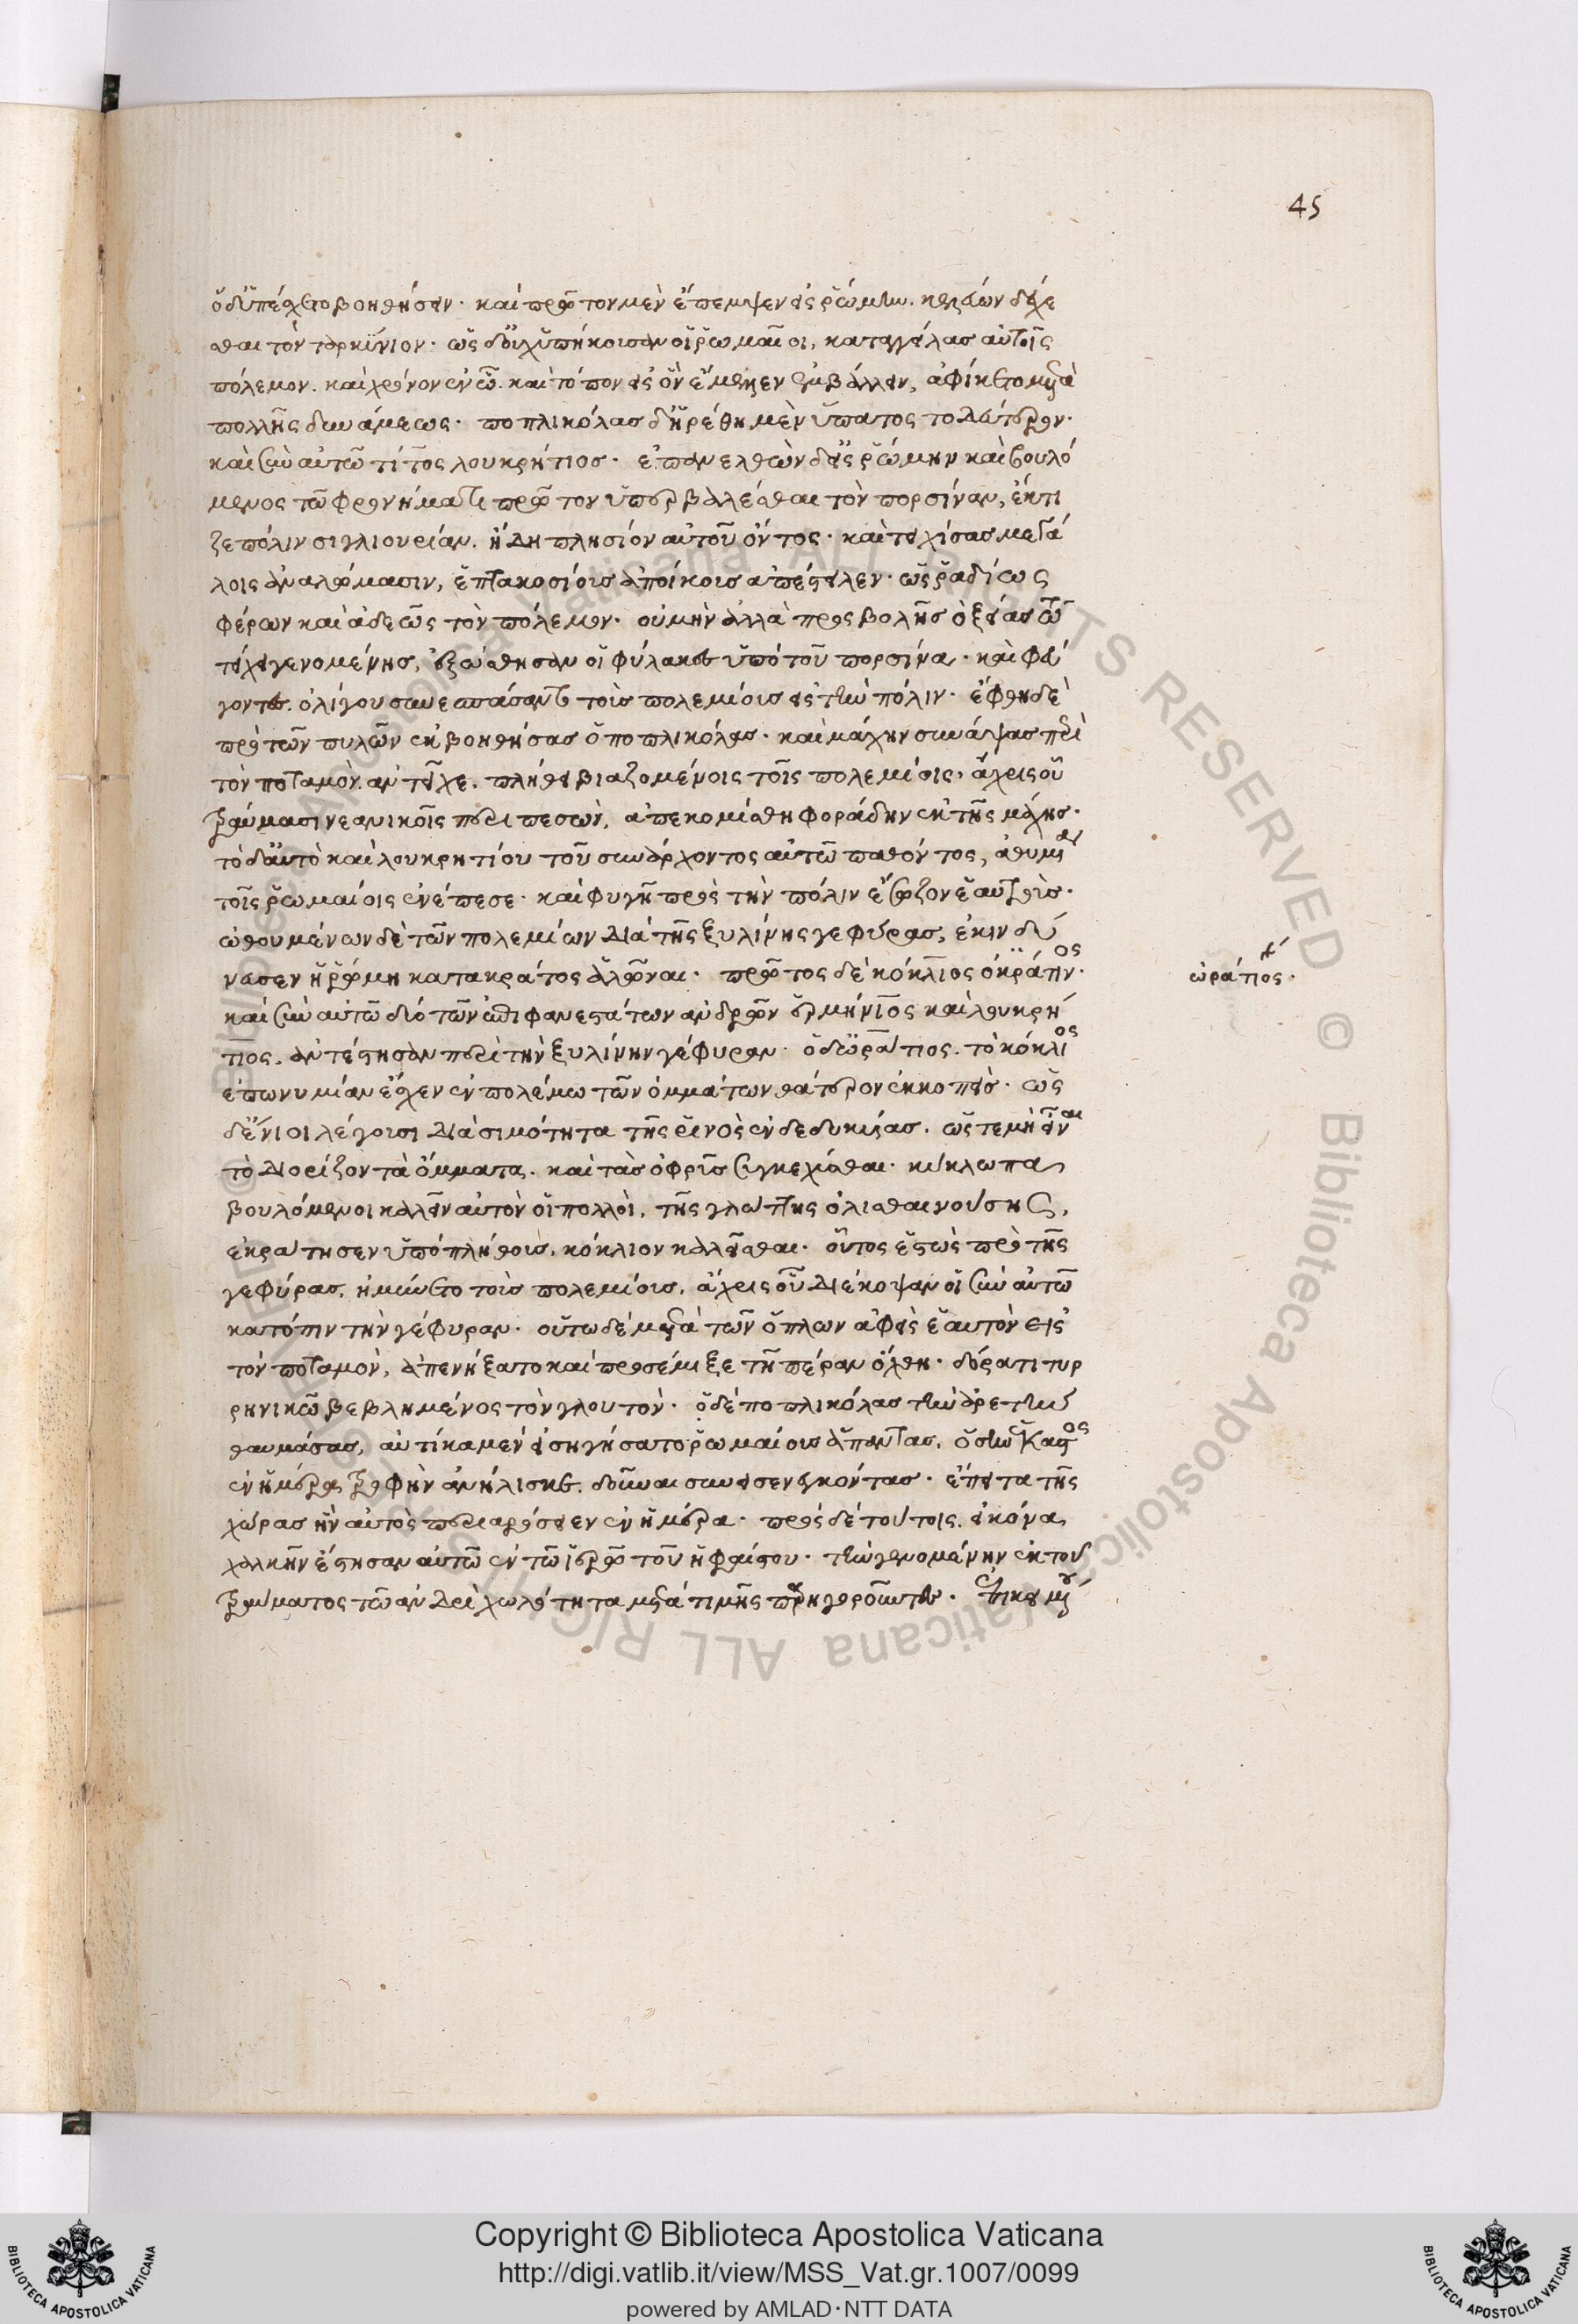 45
ὁ δ' ὑπέσχετο βοηθήσειν· καὶ πρῶτον μὲν ἔπεμψεν εἰς ῥώμην. κελεύων δέχε
σθαι τὸν ταρκύνιον· ὡς δ' οὐχ ὑπήκουσαν οἱ ῥωμαῖοι, καταγγείλας αὐτοῖς
πόλεμον. καὶ χρόνον ἐν ᾧ. καὶ τόπον εἰς ὃν ἔμελλεν ἐμβάλλειν, ἀφίκετο μετὰ
πολλῆς δυνάμεως· ποπλικόλας δ' ἡρέθη μὲν ὕπατος τὸ δεύτερον·
καὶ σὺν αὐτῶ τίτος λουκρήτιος· ἐπανελθὼν δ' εἰς ῥώμην καὶ βουλό
μενος τῶ φρονήματι πρῶτον ὑπερβαλέσθαι τὸν πορσίναν, ἔκτι
ζε πόλιν σιγλιουρίαν. ἤδη πλησίον αὐτοῦ ὄντος· καὶ τειχίσας μεγά
λοις ἀναλώμασιν, ἑπτακοσίους ἀποίκους ἀπέστειλεν· ὡς ῥαδίως
φέρων καὶ ἀδεῶς τὸν πόλεμον· οὐ μὴν ἀλλὰ προσβολῆς ὀξείας τῶ
τείχει γενομένης, ἐξεώσθησαν οἱ φύλακες ὑπὸ τοῦ πορσίνα· καὶ φεύ
γοντες. ὀλίγου συνεσπάσαντο τοὺς πολεμίους εἰς τὴν πόλιν· ἔφθη δὲ
πρὸ τῶν πυλῶν ἐκβοηθήσας ὁ ποπλικόλας· καὶ μάχην συνάψας περὶ
τὸν ποταμὸν. ἀντεῖχε. πλήθει βιαζομένοις τοῖς πολεμίοις, ἄχρις οὗ
τραύμασι νεανικοῖς περιπεσὼν, ἀπεκομίσθη φοράδην ἐκ τῆς μάχης·
τὸ δ' αὐτὸ καὶ λουκρητίου τοῦ συνάρχοντος αὐτῶ παθόντος, ἀθυμία
τοῖς ῥωμαίοις ἐνέπεσε· καὶ φυγῆ πρὸς τὴν πόλιν ἔσωζον ἑαυτοὺς·
ὠθουμένων δὲ τῶν πολεμίων διὰ τῆς ξυλίνης γεφύρας, ἐκινδύ
νευσεν ἡ ῥώμη κατακράτος ἁλῶναι· πρῶτος δὲ κόκλιος ὁκράτιος·
ὡράτιος·
καὶ σὺν αὐτῶ δύο τῶν ἐπιφανεστάτων ἀνδρῶν ἑρμήνιος καὶ λουκρή
τιος. ἀντέστησαν περὶ τὴν ξυλίνην γέφυραν· ὁ δ' ὡράτιος. τὸ κόκλιος
ἐπωνυμίαν ἔσχεν ἐν πολέμω τῶν ὀμμάτων θάτερον ἐκκοπεὶς· ὡς
δ' ἔνιοι λέγουσι διὰ σιμότητα τῆς ῥινὸς ἐνδεδυκυίας. ὥς τε μὴ εἶναι
τὸ διορίζον τὰ ὄμματα. καὶ τὰς ὀφρῦς συγκεχύσθαι. κύκλωπα
βουλόμενοι καλεῖν αὐτὸν οἱ πολλοὶ, τῆς γλώττης ὀλισθαινούσης,
ἐκράτησεν ὑπὸ πλήθους. κόκλιον καλεῖσθαι· οὗτος ἑστὼς πρὸ τῆς
γεφύρας. ἠμύνετο τοὺς πολεμίους. ἄχρις οὗ διέκοψαν οἱ σὺν αὐτῶ
κατόπιν τὴν γέφυραν· οὕτω δὲ μετὰ τῶν ὅπλων ἀφεὶς ἑαυτὸν εἰς
τὸν ποταμὸν, ἀπενήξατο καὶ προσέμιξε τῆ πέραν ὄχθη· δόρατι τυρ
ρηνικῶ βεβλημένος τὸν γλουτὸν· ὁ δὲ ποπλικόλας τὴν ἀρετὴν
θαυμάσας, αὐτίκα μὲν εἰσηγήσατο ῥωμαίους ἅπαντας, ὅσην ἕκαστος
ἐν ἡμέρα τροφὴν ἀνήλισκε. δοῦναι συνεισενεγκόντας· ἔπειτα τῆς
χώρας ἣν αὐτὸς περιαρόσειεν ἐν ἡμέρα· πρὸς δὲ τούτοις. εἰκόνα
χαλκῆν ἔστησαν αὐτῶ ἐν τῶ ἱερῶ τοῦ ἡφαίστου· τὴν γενομένην ἐκ τοῦ
τραύματος τῶ ἀνδρὶ χωλότητα μετὰ τιμῆς παρηγοροῦντες·